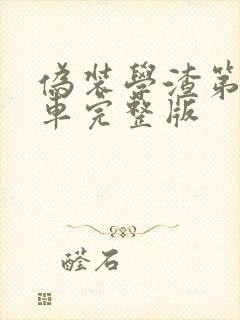 偽裝學渣第
車完整版
醛石